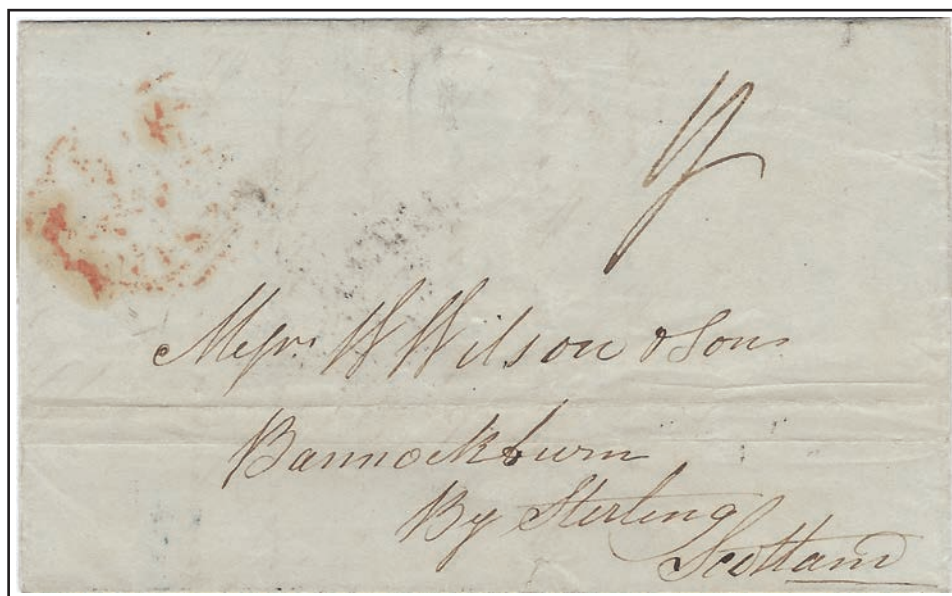 Messrs W Wilson & Sons
Bannockburn
By Sterling
Scotland